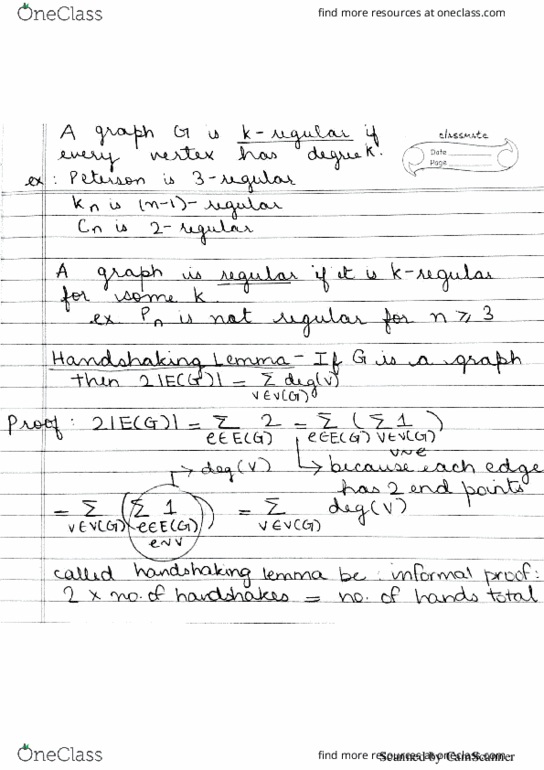 OneClass
find more resources at oneclass.com
A graph G is k-regular if
classmate
every vertex has degree k.
Date
Page
ex: Peterson is 3-regular
Kn is (n-1)-regular
Cn is 2-regular
A graph is regular if it is k-regular
for some k
ex Pn is not regular for n ≥ 3
Handshaking Lemma - If G is a graph
then 2|E(G)| = Σ deg(v)
v∈V(G)
Proof: 2|E(G)| = Σ 2 = Σ ( Σ 1 )
e∈E(G) e∈E(G) v∈V(G)
v~e
→ deg(v) ↳ because each edge
has 2 end points
= Σ ( Σ 1 ) = Σ deg(v)
v∈V(G) e∈E(G) v∈V(G)
e~v
called handshaking lemma bc: informal proof:
2 × no. of handshakes = no. of hands total
OneClass
find more resources at oneclass.com
Scanned by CamScanner